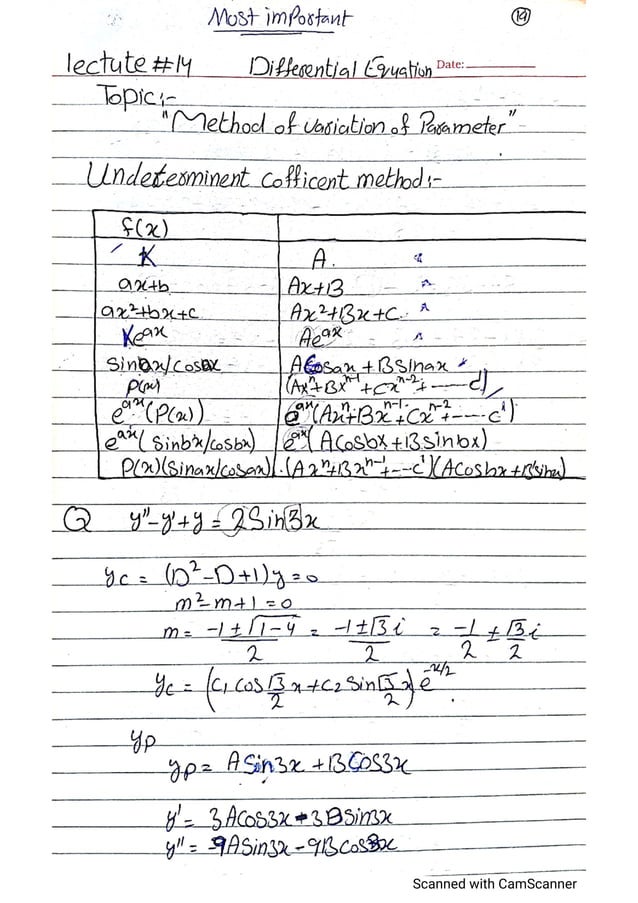 Most imPortant
19
lectute #14 Differential Equation Date:
Topic:-
"Method of variation of Parameter"
Undeterminent cofficent method:-
f(x)
K A.
ax+b Ax+B
ax²+bx+c Ax²+Bx+C
Ke^ax Ae^ax
Sinax/cosax ACosax + BSinax
P(x) (Axⁿ+Bxⁿ⁻¹+Cxⁿ⁻²+-----d)
e^ax(P(x)) e^ax(Axⁿ+Bxⁿ⁻¹+Cxⁿ⁻²+----c')
e^ax(Sinbx/cosbx) e^ax(ACosbx+BSinbx)
P(x)(Sinax/cosax) (Axⁿ+Bxⁿ⁻¹+--c')(ACosbx+BSinbx)
Q y''-y'+y = 2Sin3x
yc = (D²-D+1)y=0
m²-m+1=0
m = -1±√1-4/2 = -1±√3i/2 = -1/2 ± √3/2 i
yc = (C1 cos √3/2 x + C2 Sin √3/2 x) e^-x/2
yp
yp = ASin3x + BCos3x
y' = 3ACos3x - 3BSin3x
y'' = -9ASin3x - 9Bcos3x
Scanned with CamScanner